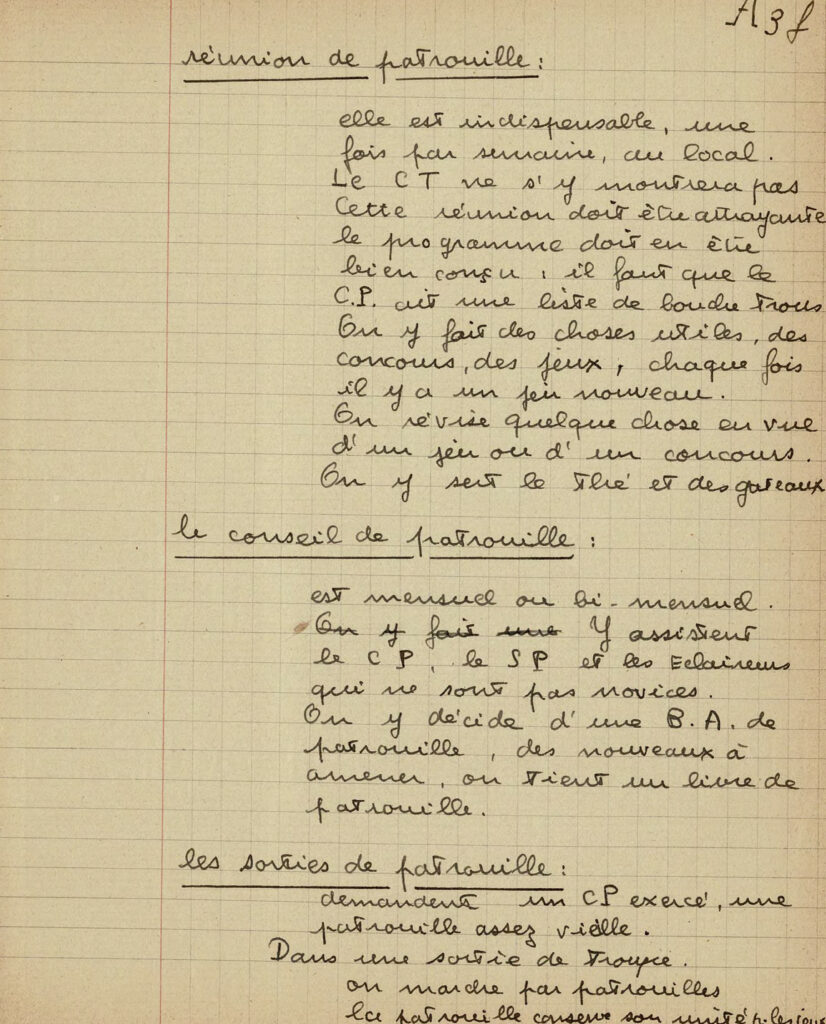 A3f
réunion de patrouille :
elle est indispensable, une
fois par semaine, au local.
Le CT ne s'y montrera pas
Cette réunion doit être attrayante
le programme doit en être
bien conçu : il faut que le
C.P. ait une liste de bouche trous
On y fait des choses utiles, des
concours, des jeux, chaque fois
il y a un jeu nouveau.
On révise quelque chose en vue
d'un jeu ou d'un concours.
On y sert le thé et des gateaux
le conseil de patrouille :
est mensuel ou bi-mensuel.
On y fait une Y assistent
le CP, le SP et les Eclaireurs
qui ne sont pas novices.
On y décide d'une B.A. de
patrouille, des nouveaux à
amener, on tient un livre de
patrouille.
les sorties de patrouille :
demandent un CP exercé, une
patrouille assez vieille.
Dans une sortie de troupe.
on marche par patrouilles
la patrouille conserve son unité p. les jeux